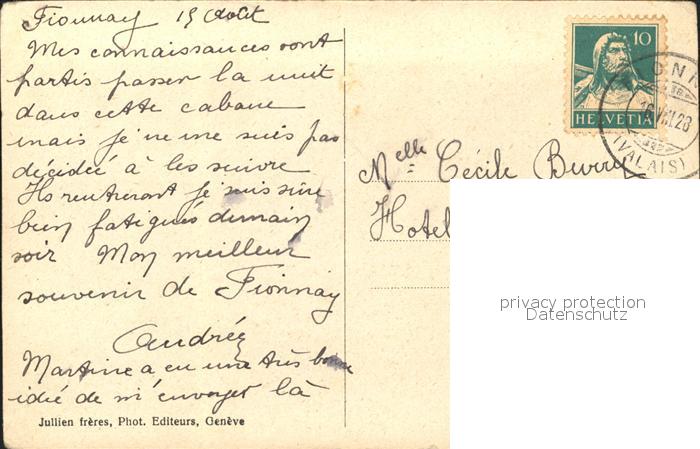 Fionnay 15 Août
Mes connaissances sont
partis passer la nuit
dans cette cabane
mais je ne me suis pas
décidée à les suivre
Ils rentreront je suis sûre
bien fatigués demain
soir Mon meilleur
souvenir de Fionnay
Andrée
Martine a eu une très bonne
idée de m'envoyer là
Jullien frères, Phot. Editeurs, Genève
10
HELVETIA
16.VIII.28
(VALAIS)
Melle Cécile
Hotel
privacy protection
Datenschutz